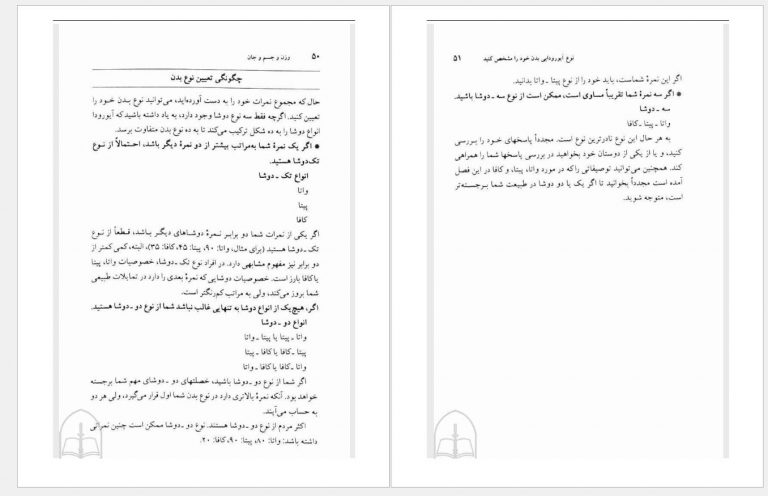 ۵۰ وزن و جسم و جان
چگونگی تعیین نوع بدن
حال که مجموع نمرات خود را به دست آورده‌اید، می‌توانید نوع بدن خود را
تعیین کنید. اگرچه فقط سه نوع دوشا وجود دارد، به یاد داشته باشید که آیورودا
انواع دوشا را به ده شکل ترکیب می‌کند تا به ده نوع بدن متفاوت برسد.
● اگر یک نمرهٔ شما به‌مراتب بیشتر از دو نمرهٔ دیگر باشد، احتمالاً از نوع
تک‌دوشا هستید.
انواع تک ـ دوشا
واتا
پیتا
کافا
اگر یکی از نمرات شما دو برابر نمرهٔ دوشاهای دیگر باشد، قطعاً از نوع
تک ـ دوشا هستید (برای مثال، واتا: ۹۰، پیتا: ۴۵، کافا: ۳۵)، البته، کمی کمتر از
دو برابر نیز مفهوم مشابهی دارد. در افراد نوع تک ـ دوشا، خصوصیات واتا، پیتا
یا کافا بارز است. خصوصیات دوشایی که نمرهٔ بعدی را دارد در تمایلات طبیعی
شما بروز می‌کند، ولی به مراتب کم‌رنگتر است.
اگر، هیچ‌یک از انواع دوشا به تنهایی غالب نباشد شما از نوع دو ـ دوشا هستید.
انواع دو ـ دوشا
واتا ـ پیتا یا پیتا ـ واتا
پیتا ـ کافا یا کافا ـ پیتا
واتا ـ کافا یا کافا ـ واتا
اگر شما از نوع دو ـ دوشا باشید، خصلتهای دو ـ دوشای مهم شما برجسته
خواهد بود. آنکه نمرهٔ بالاتری دارد در نوع بدن شما اول قرار می‌گیرد، ولی هر دو
به حساب می‌آیند.
اکثر مردم از نوع دو ـ دوشا هستند. نوع دو ـ دوشا ممکن است چنین نمراتی
داشته باشد: واتا: ۸۰، پیتا: ۹۰، کافا: ۲۰.
نوع آیورودایی بدن خود را مشخص کنید ۵۱
اگر این نمرهٔ شماست، باید خود را از نوع پیتا ـ واتا بدانید.
● اگر سه نمرهٔ شما تقریباً مساوی است، ممکن است از نوع سه ـ دوشا باشید.
سه ـ دوشا
واتا ـ پیتا ـ کافا
به هر حال این نوع نادرترین نوع است. مجدداً پاسخهای خود را بررسی
کنید، و یا از یکی از دوستان خود بخواهید در بررسی پاسخها شما را همراهی
کند. همچنین می‌توانید توصیفاتی را که در مورد واتا، پیتا، و کافا در این فصل
آمده است مجدداً بخوانید تا اگر یک یا دو دوشا در طبیعت شما برجسته‌تر
است، متوجه شوید.